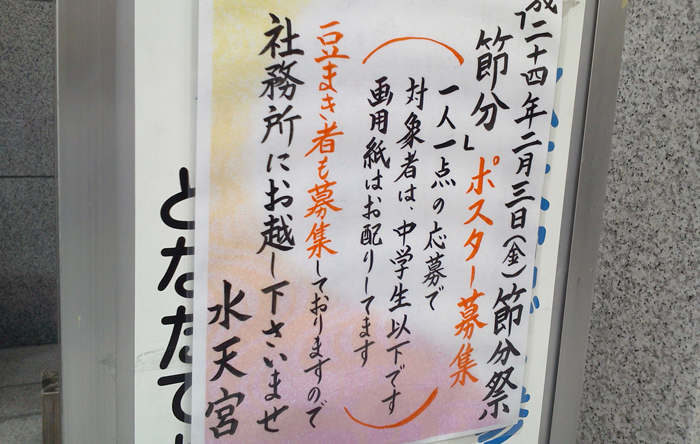 成二十四年二月三日(金)節分祭
節分」ポスター募集
一人一点の応募で
対象者は、中学生以下です
画用紙はお配りしてます
豆まき者も募集しておりますので
社務所にお越し下さいませ
水天宮
となたても